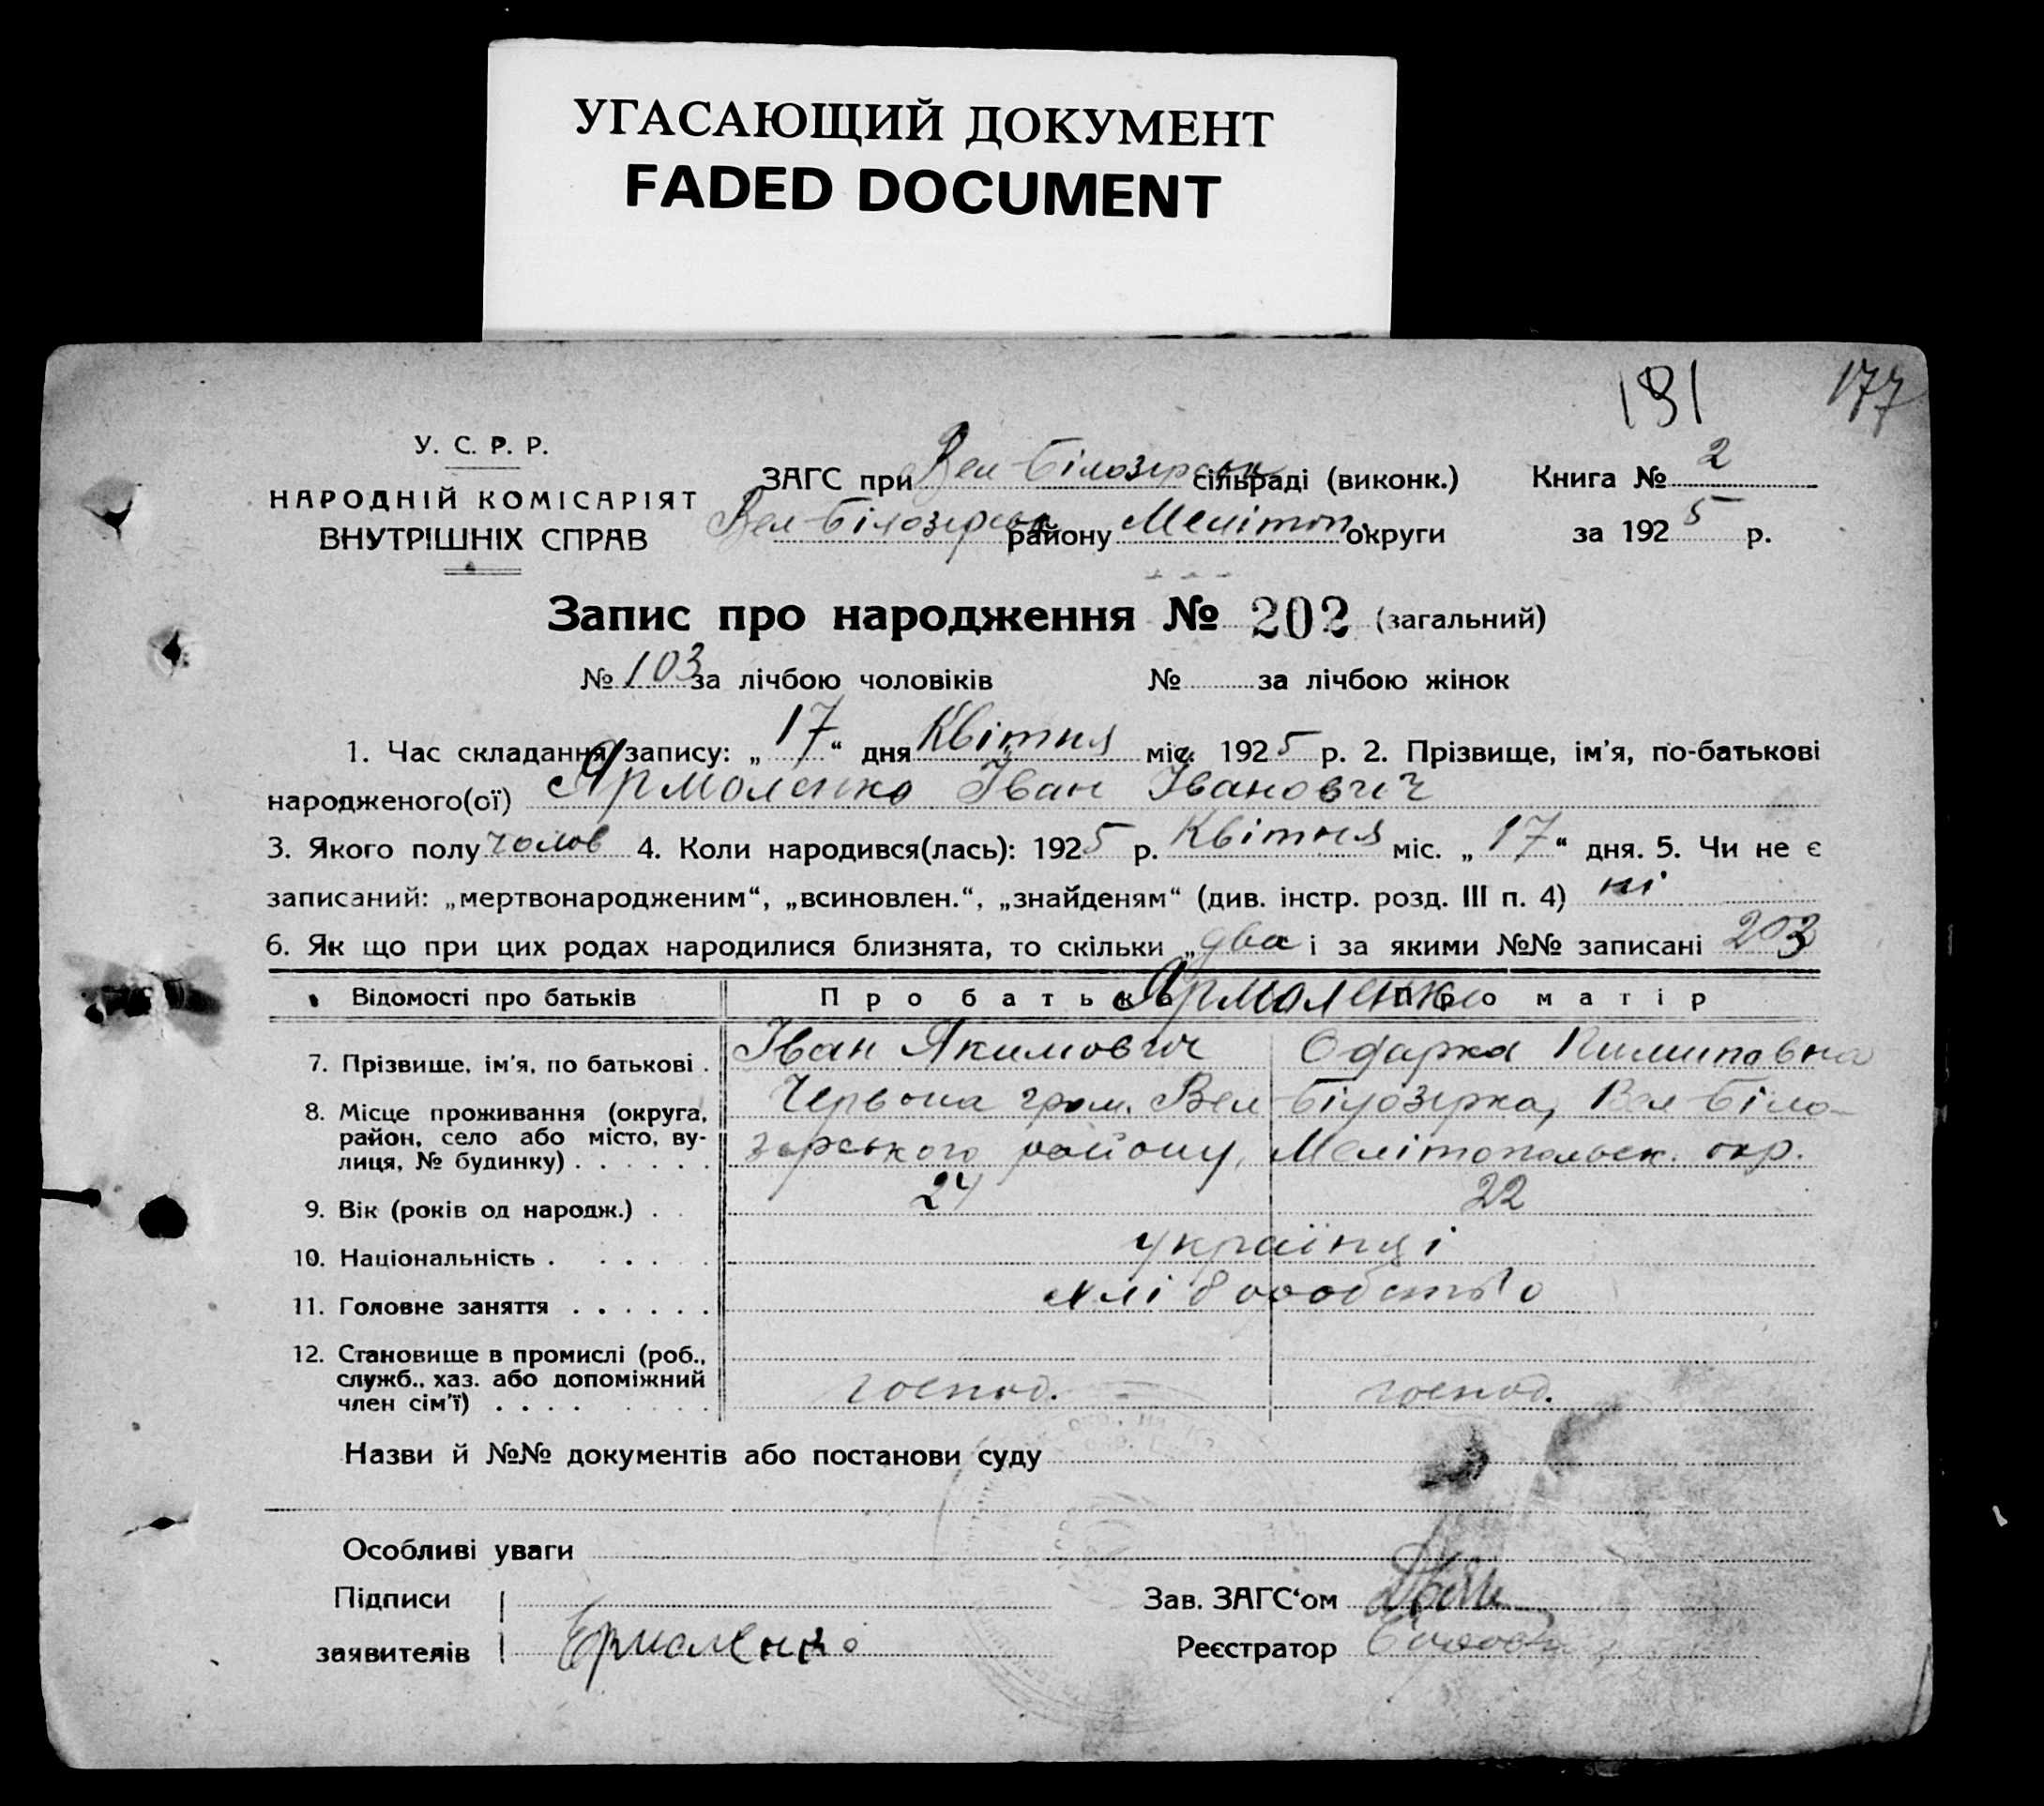 УГАСАЮЩИЙ ДОКУМЕНТ
FADED DOCUMENT
191 177
У. С. Р. Р.
НАРОДНІЙ КОМІСАРІЯТ
ВНУТРІШНІХ СПРАВ
ЗАГС при Вел-Білозерськ сільраді (виконк.) Книга № 2
Вел-Білозерськ району Мелітоп. округи за 1925 р.
Запис про народження № 202 (загальний)
№ 103 за лічбою чоловіків № за лічбою жінок
1. Час складання запису: „17“ дня Квітня міс. 1925 р. 2. Прізвище, ім'я, по-батькові
народженого(ої) Ярмоленко Іван Іванович
3. Якого полу чолов 4. Коли народився(лась): 1925 р. Квітня міс. „17“ дня. 5. Чи не є
записаний: „мертвонародженим“, „всиновлен.“, „знайденям“ (див. інстр. розд. III п. 4) ні
6. Як що при цих родах народилися близнята, то скільки „два і за якими №№ записані 203
Відомості про батьків Про батька Про матір
Ярмоленко
7. Прізвище, ім'я, по батькові . Іван Якимович Одарка Пилиповна
8. Місце проживання (округа, район, село або місто, вулиця, № будинку) . . . . . . Червона гром. Вел Білозерка, Вел-Біло-
зерського району, Мелітопольськ. окр.
9. Вік (років од народж.) . 24 22
10. Національність . . . . . українці
11. Головне заняття . . . . . . хліборобство
12. Становище в промислі (роб., служб., хаз. або допоміжний член сім'ї) . . . . . . . . господ. господ.
Назви й №№ документів або постанови суду
Особливі уваги
Підписи Зав. ЗАГС‘ом
заявителів Ермоленко Реєстратор